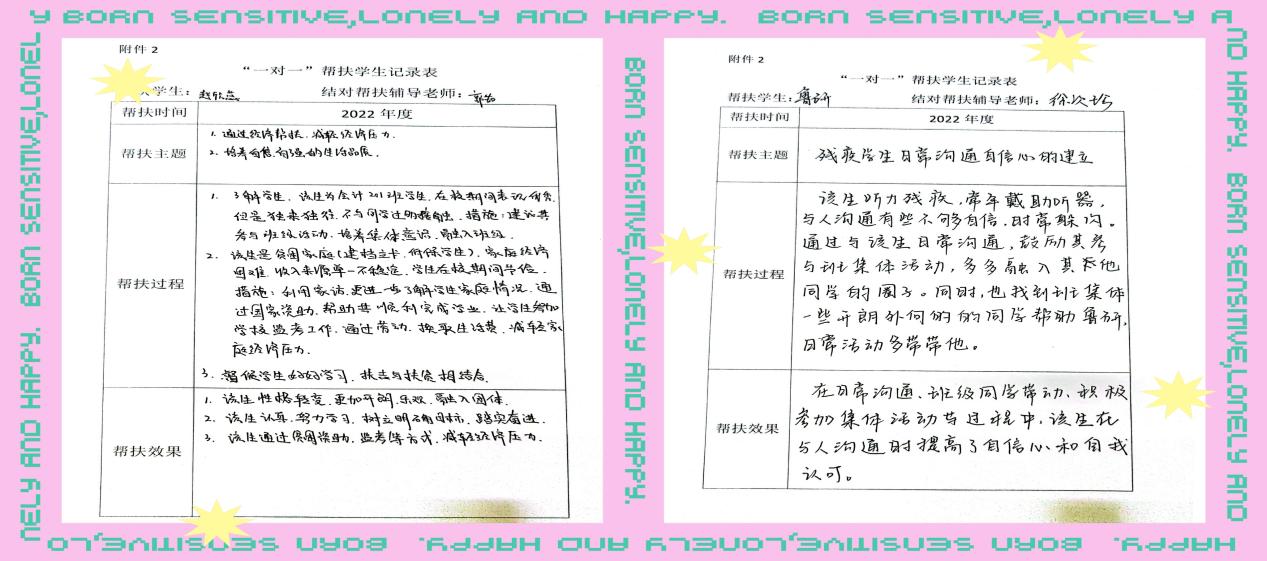 Y BORN SENSITIVE,LONELY AND HAPPY. BORN SENSITIVE,LONELY A
ND HAPPY. BORN SENSITIVE,LONELY AND
HAPPY. BORN SENSITIVE,LONELY AND HAPPY. BORN SENSITIVE,LO
NELY AND HAPPY. BORN SENSITIVE,LONEL
附件 2
“一对一”帮扶学生记录表
学生：赵欣燕 结对帮扶辅导老师：
帮扶时间 2022 年度
帮扶主题
1. 通过经济帮扶，减轻经济压力.
2. 培养自信、自强的生活品质.
帮扶过程
1. 了解学生，该生为会计201班学生，在校期间表现优秀
但是独来独往，不与同学过明接触. 措施：建议其
参与班级活动，培养集体意识，融入班级.
2. 该生是贫困家庭（建档立卡，何保学生），家庭经济
困难，收入来源单一不稳定，学生在校期间节俭.
措施：利用家访，更进一步了解学生家庭情况，通
过国家资助，帮助其顺利完成学业，让学生参加
学校监考工作，通过劳动，换取生活费，减轻家
庭经济压力.
3. 督促学生好好学习，扶志与扶贫相结合.
帮扶效果
1. 该生性格转变，更加开朗、乐观，融入团体.
2. 该生认真、努力学习，树立明确目标，踏实奋进.
3. 该生通过贫困资助、监考等方式，减轻经济压力.
BORN SENSITIVE,LONELY AND HAPPY.
附件 2
“一对一”帮扶学生记录表
帮扶学生：鲁研 结对帮扶辅导老师：徐次
帮扶时间 2022 年度
帮扶主题 残疾学生日常沟通自信心的建立
帮扶过程
该生听力残疾，常年戴助听器，
与人沟通有些不够自信，时常躲闪。
通过与该生日常沟通，鼓励其参
与班集体活动，多多融入其他
同学的圈子。同时，也找到班集体
一些开朗外向的的同学帮助鲁研，
日常活动多带带他。
帮扶效果
在日常沟通、班级同学带动、积极
参加集体活动等过程中，该生在
与人沟通时提高了自信心和自我
认可。